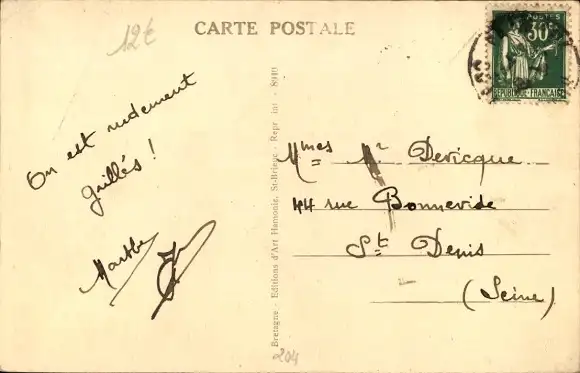 12€
CARTE POSTALE
POSTES
30c
REPUBLIQUE-FRANCAISE
On est rudement
grillés !
Marthe
Bretagne - Editions d'Art Hamonic, St-Brieuc - Repr. int. - 8010
Mmes Dericque
44 rue Bonnevide
St Denis
(Seine)
204